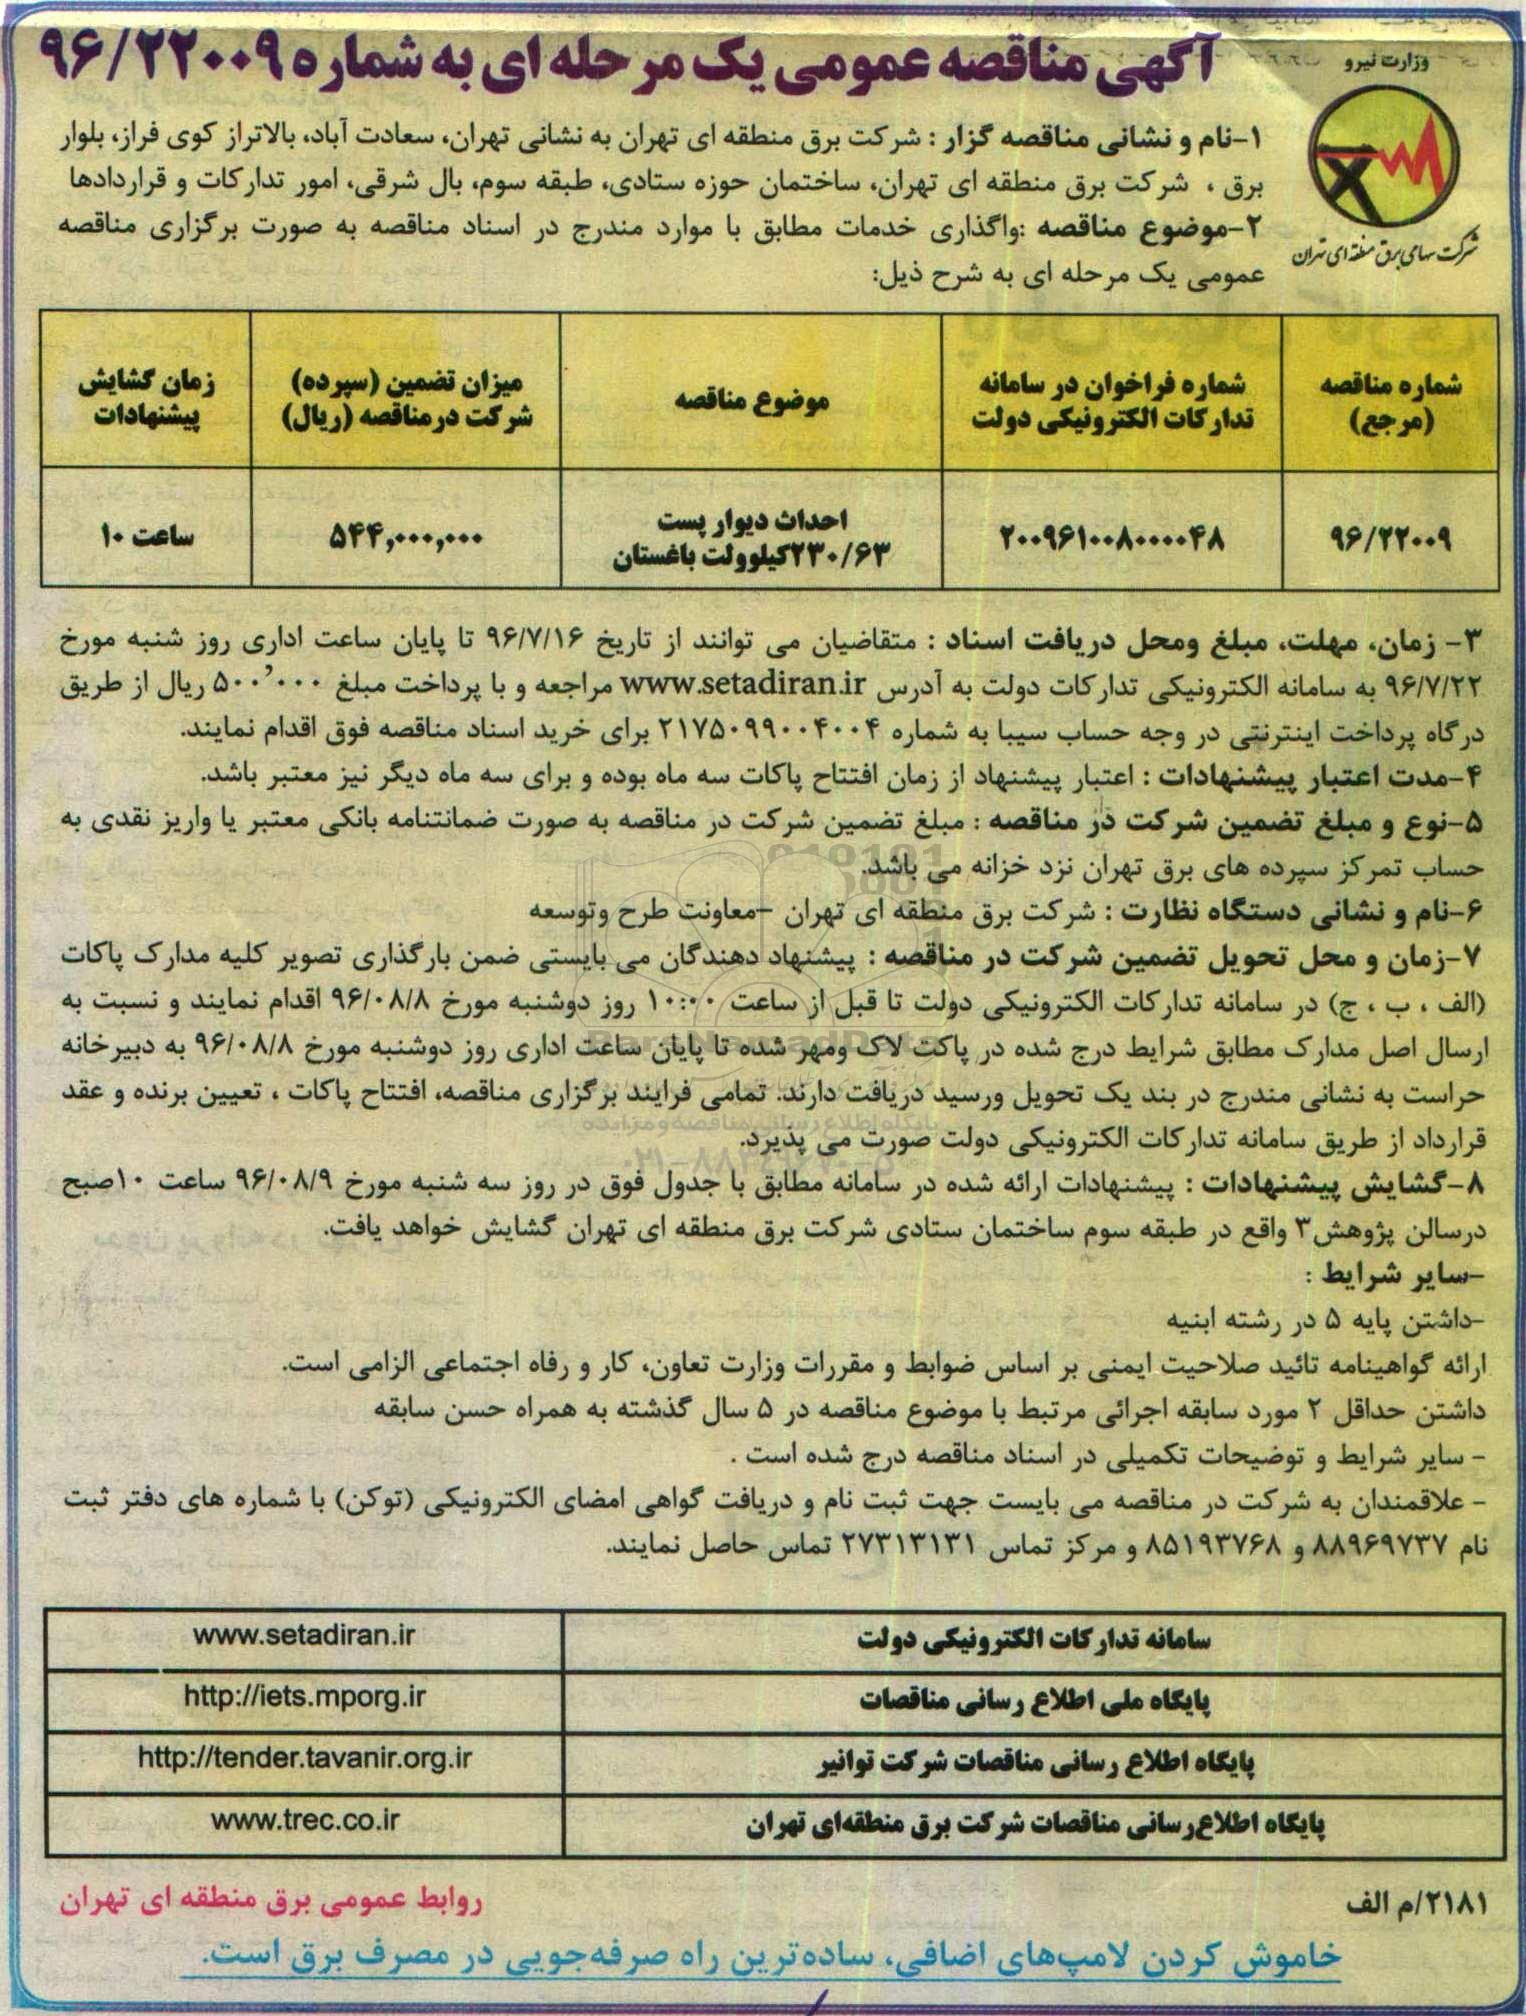 وزارت نیرو
آگهی مناقصه عمومی یک مرحله ای به شماره ۹۶/۲۲۰۰۹
شرکت سهامی برق منطقه ای تهران
۱-نام و نشانی مناقصه گزار : شرکت برق منطقه ای تهران به نشانی تهران، سعادت آباد، بالاتراز کوی فراز، بلوار
برق ، شرکت برق منطقه ای تهران، ساختمان حوزه ستادی، طبقه سوم، بال شرقی، امور تدارکات و قراردادها
۲-موضوع مناقصه :واگذاری خدمات مطابق با موارد مندرج در اسناد مناقصه به صورت برگزاری مناقصه
عمومی یک مرحله ای به شرح ذیل:
شماره مناقصه (مرجع)
شماره فراخوان در سامانه تدارکات الکترونیکی دولت
موضوع مناقصه
میزان تضمین (سپرده) شرکت درمناقصه (ریال)
زمان گشایش پیشنهادات
۹۶/۲۲۰۰۹
۲۰۰۹۶۱۰۰۸۰۰۰۰۴۸
احداث دیوار پست
۲۳۰/۶۳کیلوولت باغستان
۵۴۴,۰۰۰,۰۰۰
ساعت ۱۰
۳- زمان، مهلت، مبلغ ومحل دریافت اسناد : متقاضیان می توانند از تاریخ ۹۶/۷/۱۶ تا پایان ساعت اداری روز شنبه مورخ
۹۶/۷/۲۲ به سامانه الکترونیکی تدارکات دولت به آدرس www.setadiran.ir مراجعه و با پرداخت مبلغ ۵۰۰٬۰۰۰ ریال از طریق
درگاه پرداخت اینترنتی در وجه حساب سیبا به شماره ۲۱۷۵۰۹۹۰۰۴۰۰۴ برای خرید اسناد مناقصه فوق اقدام نمایند.
۴-مدت اعتبار پیشنهادات : اعتبار پیشنهاد از زمان افتتاح پاکات سه ماه بوده و برای سه ماه دیگر نیز معتبر باشد.
۵-نوع و مبلغ تضمین شرکت در مناقصه : مبلغ تضمین شرکت در مناقصه به صورت ضمانتنامه بانکی معتبر یا واریز نقدی به
حساب تمرکز سپرده های برق تهران نزد خزانه می باشد.
۶-نام و نشانی دستگاه نظارت : شرکت برق منطقه ای تهران -معاونت طرح وتوسعه
۷-زمان و محل تحویل تضمین شرکت در مناقصه : پیشنهاد دهندگان می بایستی ضمن بارگذاری تصویر کلیه مدارک پاکات
(الف ، ب ، ج) در سامانه تدارکات الکترونیکی دولت تا قبل از ساعت ۱۰:۰۰ روز دوشنبه مورخ ۹۶/۰۸/۸ اقدام نمایند و نسبت به
ارسال اصل مدارک مطابق شرایط درج شده در پاکت لاک ومهر شده تا پایان ساعت اداری روز دوشنبه مورخ ۹۶/۰۸/۸ به دبیرخانه
حراست به نشانی مندرج در بند یک تحویل ورسید دریافت دارند. تمامی فرایند برگزاری مناقصه، افتتاح پاکات ، تعیین برنده و عقد
قرارداد از طریق سامانه تدارکات الکترونیکی دولت صورت می پذیرد.
۸-گشایش پیشنهادات : پیشنهادات ارائه شده در سامانه مطابق با جدول فوق در روز سه شنبه مورخ ۹۶/۰۸/۹ ساعت ۱۰صبح
درسالن پژوهش۳ واقع در طبقه سوم ساختمان ستادی شرکت برق منطقه ای تهران گشایش خواهد یافت.
-سایر شرایط :
-داشتن پایه ۵ در رشته ابنیه
ارائه گواهینامه تائید صلاحیت ایمنی بر اساس ضوابط و مقررات وزارت تعاون، کار و رفاه اجتماعی الزامی است.
داشتن حداقل ۲ مورد سابقه اجرائی مرتبط با موضوع مناقصه در ۵ سال گذشته به همراه حسن سابقه
- سایر شرایط و توضیحات تکمیلی در اسناد مناقصه درج شده است .
- علاقمندان به شرکت در مناقصه می بایست جهت ثبت نام و دریافت گواهی امضای الکترونیکی (توکن) با شماره های دفتر ثبت
نام ۸۸۹۶۹۷۳۷ و ۸۵۱۹۳۷۶۸ و مرکز تماس ۲۷۳۱۳۱۳۱ تماس حاصل نمایند.
سامانه تدارکات الکترونیکی دولت www.setadiran.ir
پایگاه ملی اطلاع رسانی مناقصات http://iets.mporg.ir
پایگاه اطلاع رسانی مناقصات شرکت توانیر http://tender.tavanir.org.ir
پایگاه اطلاع‌رسانی مناقصات شرکت برق منطقه‌ای تهران www.trec.co.ir
۲۱۸۱/م الف
روابط عمومی برق منطقه ای تهران
خاموش کردن لامپ‌های اضافی، ساده‌ترین راه صرفه‌جویی در مصرف برق است.